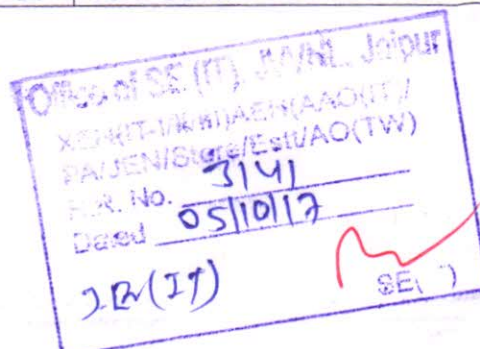 Office of SE (IT), JVVNL, Jaipur
XEN(IT-I/II/III)AEN(AAO(IT)/
PA/JEN/Store/Estt/AO(TW)
R.R. No. 3141
Dated 05/10/17
(IT)
SE( )